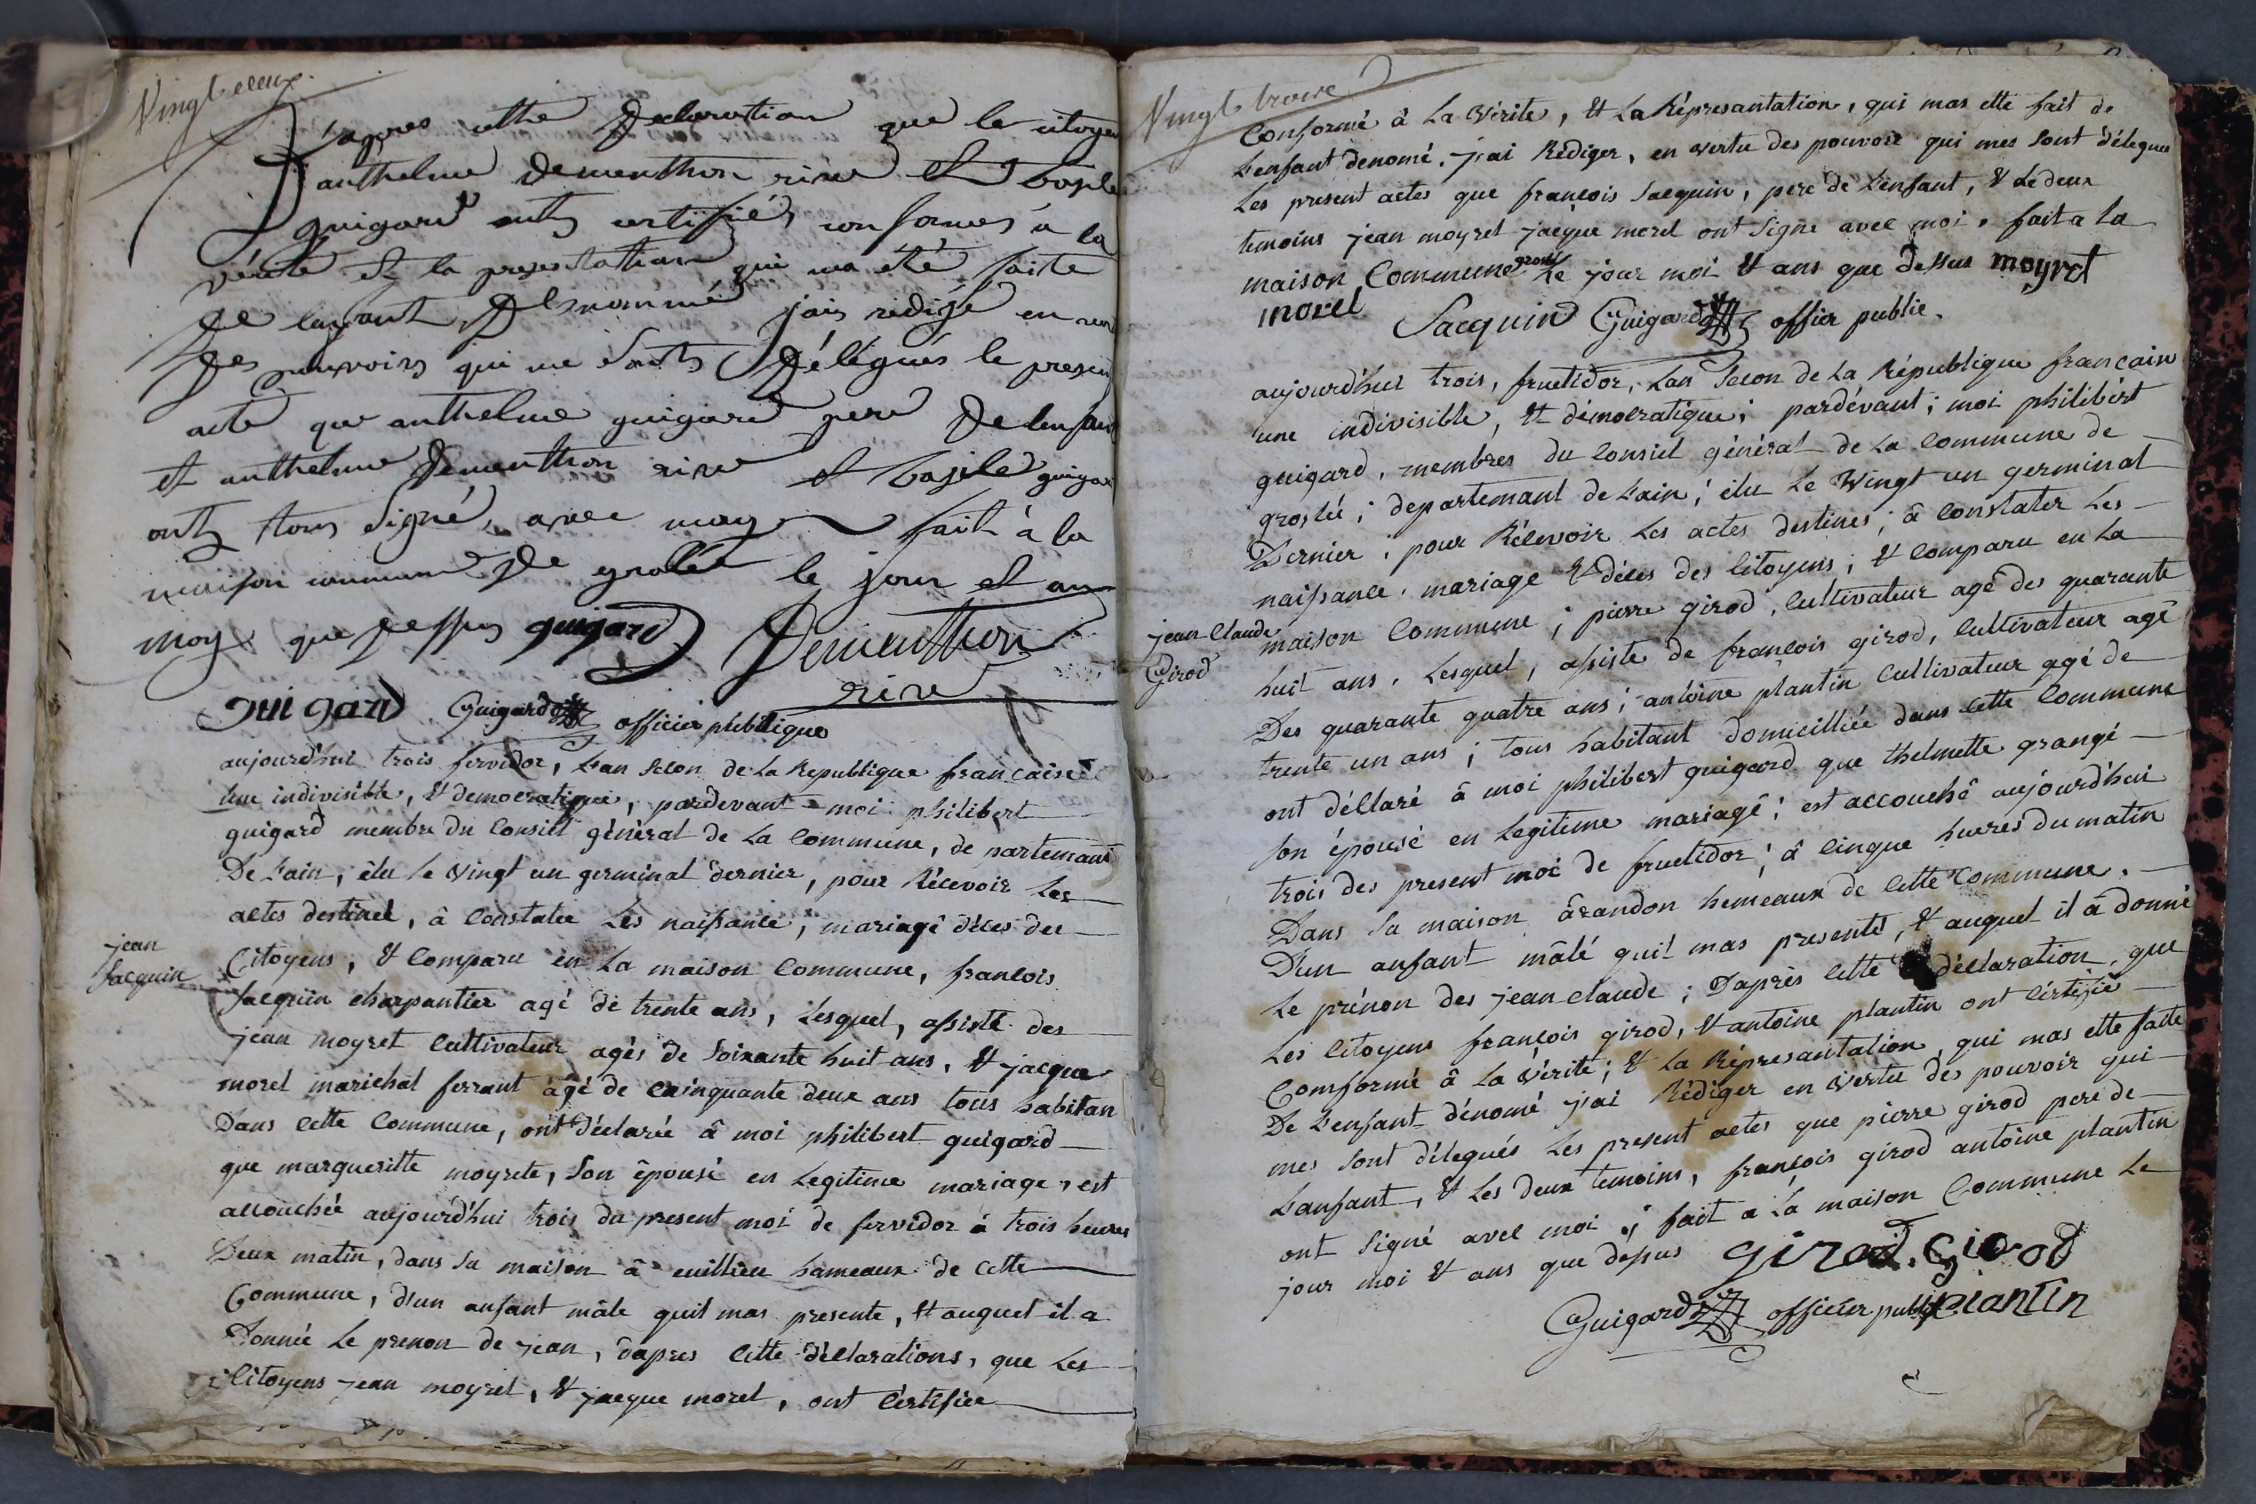 Vingt deux
D'appres cette Declaration que le citoyen
anthelme dementhon rive Et basile
guigard onts certiffiés conformes à la
vérité et la presentation qui ma été faite
De lenfant Denommé jais rédigé en ver
Des pouvoirs qui me sonts Délégués le present
acte que anthelme guigard pere De lenfant
et anthelme Dementhon rive et basile guigar
onts tous signé avec moy fait à la
maison commune De grolée le jour et an
moy que Dessus guigard Dementhon
rive
gui gard Guigard officier plublique
aujourd'hui trois fervidor, L'an secon de La Republique francaise
une indivisible, & democratique, pardevant moi philibert
guigard membre du Consiel général de La Commune, de partemant
De L'ain, élu le Vingt un germinal dernier, pour Récevoir Les
actes destinel, â Constater Les naissance, mariagé déces des
jean
Jacquin
Citoyens, & Comparu en La maison Commune, francois
Jacquin charpantier agé de trente ans, Lesquel, assisté des
jean moyret Cultivateur agés de soixante huit ans, & jacque
morel marichal ferrant âgé de cainquante deux ans tous habitan
Dans Cette Commune, ont déclarée â moi philibert guigard
que margueritte moyrete, son épousé en Legitime mariage, est
accouchée aujourd'hui trois du present moi de fervidor à trois heures
Deux matin, dans sa maison â euillieu hameaux de Cette
Commune, d'un anfant mâle quil mas presente, & auquel il a
Donnée Le prenon de jean, dapres Cette déclarations, que Les
Citoyens jean moyret, & jacque morel, ont Cértifiée
Vingt troise
Conformé â La Vérite, & La Réprésantation, qui mas etté fait de
L'enfant denomé, j'ai Rédiger, en vertu des pouvoir qui mes sont délegues
Les present actes que francois Jacquin, pere de L'enfant, & Lé deux
temoins jean moyret jacque morel ont signé avec moi, fait a la
maison Commune Le jour moi & ans que dessus moyret
morel Jacquin Guigard offier public.
aujourd'hui trois, fructidor, L'an secon de La République francaise
une indivisible, & démocratique; pardévant; moi philibért
guigard, membres du Consiel général de La Commune de
groslée; departemant de L'ain; élu Le Wingt un germinal
Dernier; pour Récevoir Les actes destines; â Constater Les
naissance, mariage & déces des Citoyens; & Comparu en La
jean-Claude
Girod
maison Commune; pierre girod, Cultivateur agé des quarante
huit ans, Lesquel, assiste de francois girod, Cultivateur agé
Des quarante quatre ans; antoine plantin Cultivateur agé de
trente un ans; tous habitant domicilliée dans Cette Commune
ont déclaré â moi philibert guigard que thelmette grangé
son épousé en Legitime mariagé; est accouché aujourd'hui
trois des present moi de fructidor; â Cinque hueres du matin
Dans sa maison ârandon hemeaux de Cette Commune.
D'un anfant mâlé quil mas presenté, & auquel il â donné
Le prénon des jean claude; Daprès Cette déclaration, que
Les Citoyens francois girod, & antoine plantin ont Cértifié
Comformé â La vérité; & La Réprésantation, qui mas etté faite
De L'enfant dénomé j'ai Rédiger en vertu dés pouvoir qui
mes sont délegués Les present actes que pierre girod pere de
L'anfant, & Les deux temoins, françois girod antoine plantin
ont signé avec moi; fait a La maison Commune Le
jour moi & ans que depus girod. Girod
Guigard officier public plantin